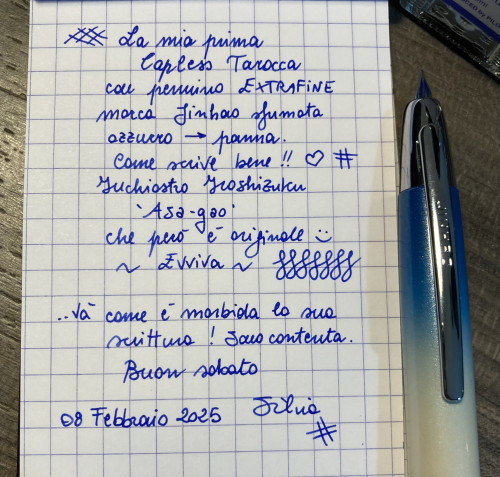 La mia prima
Capless Tarocca
con pennino EXTRAFINE
marca Jinhao sfumata
azzurro → panna.
Come scrive bene!! ♡ #
Inchiostro Iroshizuku
'Asa-gao'
che però è originale ☺
~ Evviva ~
..Và come è morbida la sua
scrittura! Sono contenta.
Buon sabato
08 Febbraio 2025 Silvia
#